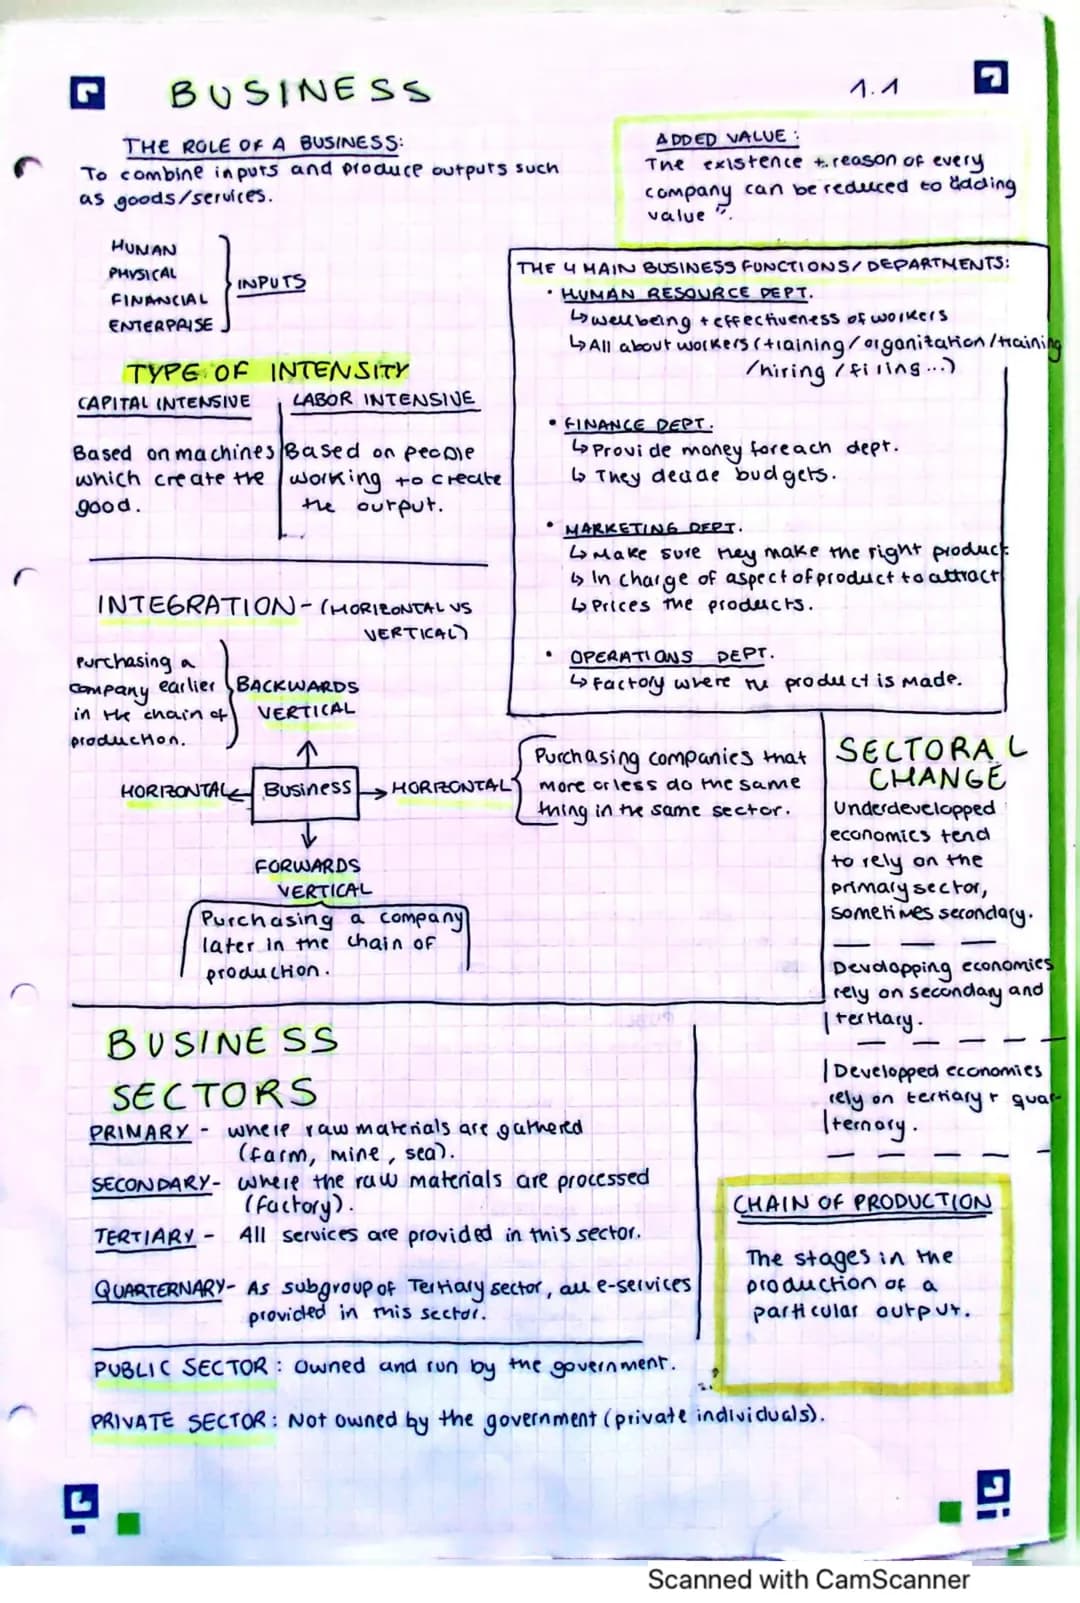 BUSINESS
1.1
THE ROLE OF A BUSINESS:
To combine inputs and produce outputs such
as goods/services.
HUMAN
PHYSICAL
FINANCIAL
ENTERPRISE
INPUTS
ADDED VALUE:
The existence + reason of every
company can be reduced to "adding
value".
TYPE OF INTENSITY
CAPITAL INTENSIVE
Based on machines
which create the
good.
LABOR INTENSIVE
Based on people
working to create
the output.
THE 4 MAIN BUSINESS FUNCTIONS/DEPARTMENTS:
• HUMAN RESOURCE DEPT.
↳ wellbeing + effectiveness of workers
↳ All about workers (training/organitation/training
/hiring/firing...)
• FINANCE DEPT.
↳ Provide money foreach dept.
↳ They decide budgets.
• MARKETING DEPT.
↳ Make sure they make the right product
↳ In charge of aspect of product to attract
↳ Prices the products.
• OPERATIONS DEPT.
↳ Factory where the product is made.
INTEGRATION - (HORIZONTAL VS
VERTICAL)
Purchasing a
company earlier
in the chain of
production.
BACKWARDS
VERTICAL
↑
HORIZONTAL ← Business → HORIZONTAL
↓
FORWARDS
VERTICAL
Purchasing a company
later in the chain of
production.
Purchasing companies that
more or less do the same
thing in the same sector.
SECTORAL
CHANGE
Underdevelopped
economics tend
to rely on the
primary sector,
sometimes secondary.
Devolopping economies
rely on secondary and
tertiary.
Developped economies
rely on tertiary + quar-
ternory.
BUSINESS
SECTORS
PRIMARY - where raw materials are gathered
(farm, mine, sea).
SECONDARY - where the raw materials are processed
(factory).
TERTIARY - All services are provided in this sector.
QUARTERNARY - As subgroup of Tertiary sector, all e-services
provided in this sector.
CHAIN OF PRODUCTION
The stages in the
production of a
particular output.
PUBLIC SECTOR: Owned and run by the government.
PRIVATE SECTOR: Not owned by the government (private individuals).
Scanned with CamScanner